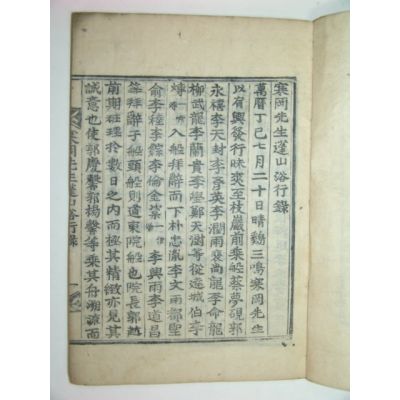 寒岡先生蓬山浴行錄
萬曆丁巳七月二十日晴鷄三鳴寒岡先生
以有輿發行昧爽至枝巖前乘船蔡夢硯郭
永禧李天封李英李潤雨裵尙龍李命龍
柳武龍李蘭貴李學鄭天澍等從達城伯李
入船拜辭而下朴忠胤李文雨都聖
俞李李李倫金李興雨李道昌
等拜辭于船頭船則道東院船也院長郭
前期理於數日之內而極其精緻亦見其
誠意也使郭慶馨郭楊馨等乘其舟溯而
寒岡先生蓬山浴行錄
一